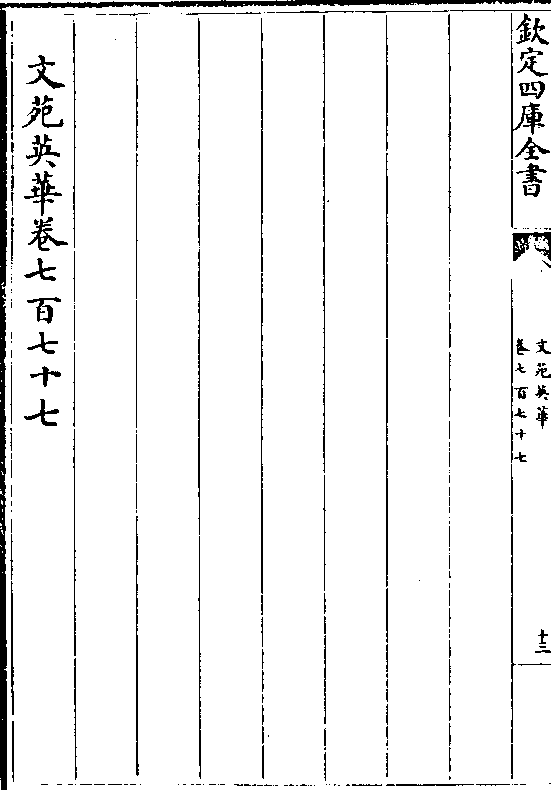 欽定四庫全書
文苑英華
卷七百七十七
十三
文苑英華卷七百七十七